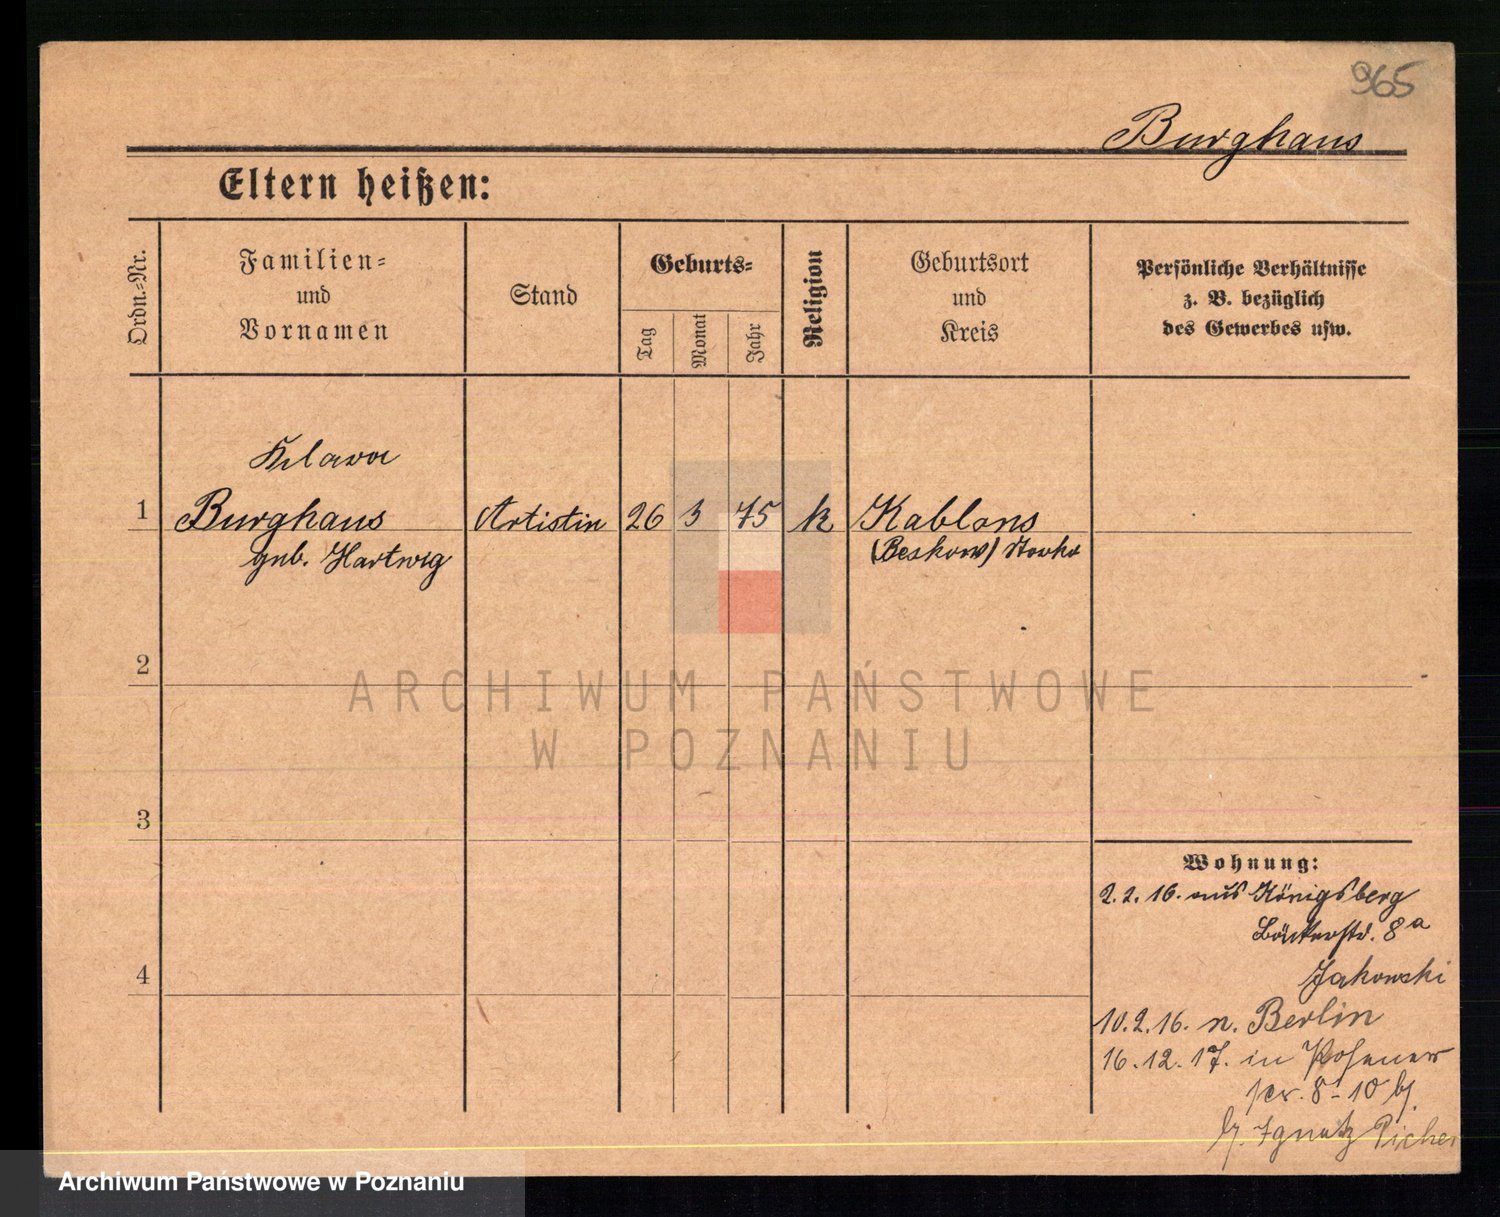 965
Burghaus
Eltern heißen:
Ordn.=Nr.
Familien=
und
Vornamen
Stand
Geburts=
Tag
Monat
Jahr
Religion
Geburtsort
und
Kreis
Persönliche Verhältnisse
z. B. bezüglich
des Gewerbes usw.
Klara
1 Burghaus Artistin 26 3 75 k Kablons
geb. Hartwig (Beskow)
2
ARCHIWUM PAŃSTWOWE
W POZNANIU
3
Wohnung:
2.2.16. aus Königsberg
Bäckerstr. 8a
Jakowski
4
10.2.16. n. Berlin
16.12.17. in Posener
8-10 bj.
bj. Ignatz Picher
Archiwum Państwowe w Poznaniu